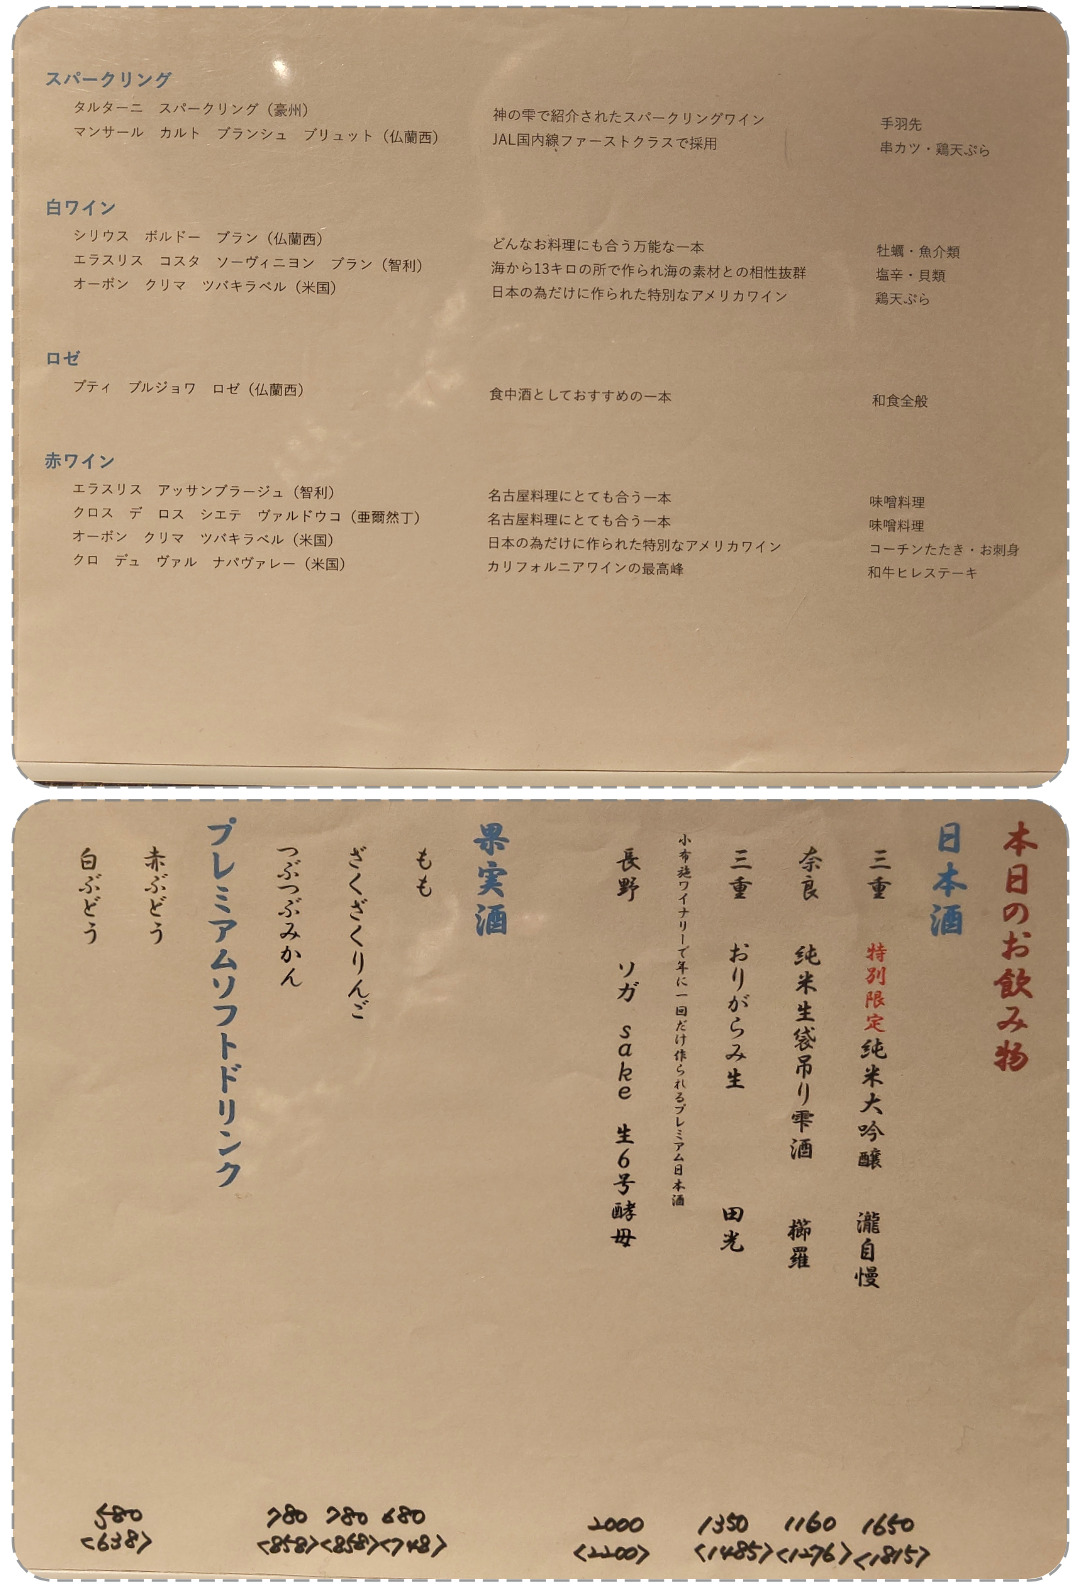 スパークリング
タルターニ　スパークリング（豪州）　神の雫で紹介されたスパークリングワイン　手羽先
マンサール　カルト　ブランシュ　ブリュット（仏蘭西）　JAL国内線ファーストクラスで採用　串カツ・鶏天ぷら
白ワイン
シリウス　ボルドー　ブラン（仏蘭西）　どんなお料理にも合う万能な一本　牡蠣・魚介類
エラスリス　コスタ　ソーヴィニヨン　ブラン（智利）　海から13キロの所で作られ海の素材との相性抜群　塩辛・貝類
オーボン　クリマ　ツバキラベル（米国）　日本の為だけに作られた特別なアメリカワイン　鶏天ぷら
ロゼ
プティ　ブルジョワ　ロゼ（仏蘭西）　食中酒としておすすめの一本　和食全般
赤ワイン
エラスリス　アッサンブラージュ（智利）　名古屋料理にとても合う一本　味噌料理
クロス　デ　ロス　シエテ　ヴァルドウコ（亜爾然丁）　名古屋料理にとても合う一本　味噌料理
オーボン　クリマ　ツバキラベル（米国）　日本の為だけに作られた特別なアメリカワイン　コーチンたたき・お刺身
クロ　デュ　ヴァル　ナパヴァレー（米国）　カリフォルニアワインの最高峰　和牛ヒレステーキ
本日のお飲み物
日本酒
三重　特別限定純米大吟醸　瀧自慢　1650　<1815>
奈良　純米生袋吊り雫酒　櫛羅　1160　<1276>
三重　おりがらみ生　田光　1350　<1485>
小布施ワイナリーで年に一回だけ作られるプレミアム日本酒
長野　ソガ　sake　生6号酵母　2000　<2200>
果実酒
もも　680　<748>
ざくざくりんご　780　<858>
つぶつぶみかん　780　<858>
プレミアムソフトドリンク
赤ぶどう　580　<638>
白ぶどう